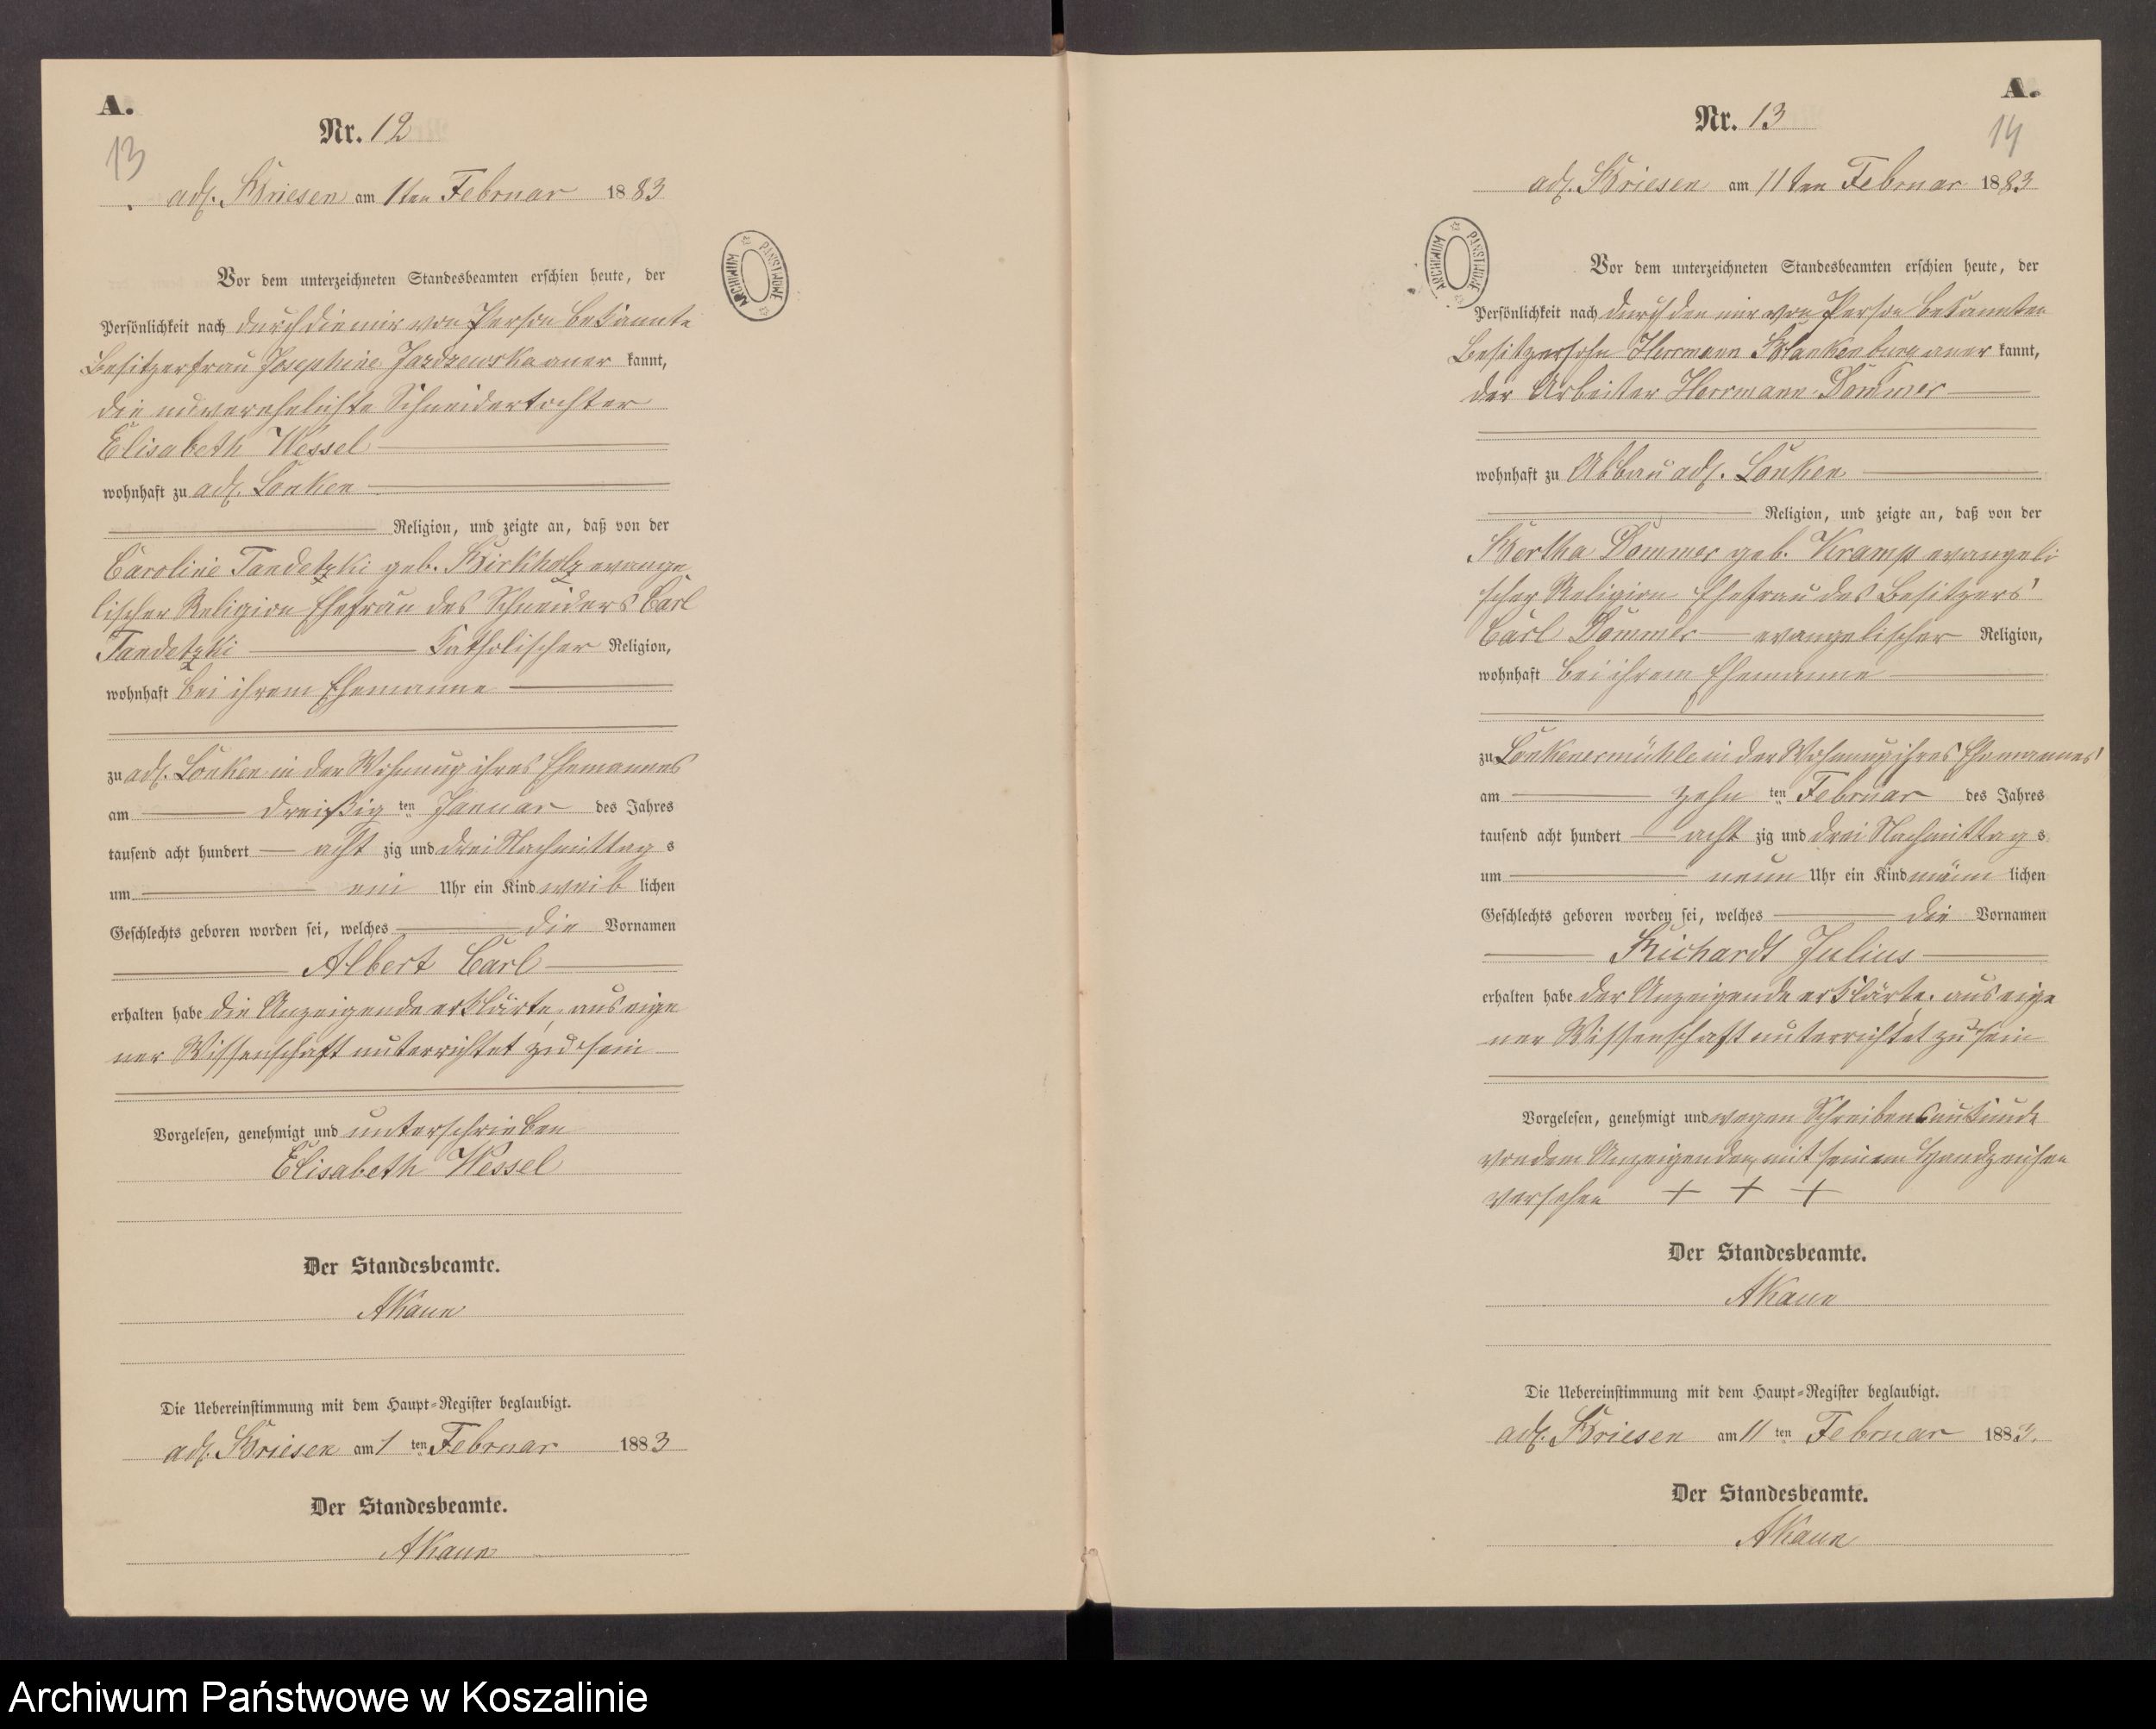 A.
13
Nr. 12
adl. Briesen am 1ten Februar 1883
ARCHIWUM PAŃSTWOWE
Vor dem unterzeichneten Standesbeamten erschien heute, der
Persönlichkeit nach durch die mir von Person bekannte
Besitzerfrau Josephine Jazdzewska aner kannt,
die unverehelichte Schneidertochter
Elisabeth Wessel
wohnhaft zu adl. Lonken
Religion, und zeigte an, daß von der
Caroline Tandetzki geb. Birkholz evange
lischer Religion Ehefrau des Schneiders Carl
Tandetzki Katholischer Religion,
wohnhaft bei ihrem Ehemanne
zu adl. Lonken in der Wohnung ihres Ehemannes
am dreißig ten Januar des Jahres
tausend acht hundert acht zig und drei Nachmittag s
um ein Uhr ein Kind weib lichen
Geschlechts geboren worden sei, welches die Vornamen
Albert Carl
erhalten habe die Anzeigende erklärte, aus eige
ner Wissenschaft unterrichtet zu sein
Vorgelesen, genehmigt und unterschrieben
Elisabeth Wessel
Der Standesbeamte.
AKaun
Die Uebereinstimmung mit dem Haupt-Register beglaubigt.
adl. Briesen am 1 ten Februar 1883
Der Standesbeamte.
AKaun
A.
14
Nr. 13
adl. Briesen am 11ten Februar 1883
ARCHIWUM PAŃSTWOWE
Vor dem unterzeichneten Standesbeamten erschien heute, der
Persönlichkeit nach durch den mir von Person bekannten
Besitzersohn Herrmann Blankenburg aner kannt,
der Arbeiter Herrmann Dommer
wohnhaft zu Abbau adl. Lonken
Religion, und zeigte an, daß von der
Bertha Dommer geb. Kramp evangeli
scher Religion Ehefrau des Besitzers
Carl Dommer evangelischer Religion,
wohnhaft bei ihrem Ehemanne
zu Lonkenermühle in der Wohnung ihres Ehemannes
am zehn ten Februar des Jahres
tausend acht hundert acht zig und drei Nachmittag s
um neun Uhr ein Kind männ lichen
Geschlechts geboren worden sei, welches die Vornamen
Richardt Julius
erhalten habe der Anzeigende erklärte, aus eige
ner Wissenschaft unterrichtet zu sein
Vorgelesen, genehmigt und wegen Schreibensunkunde
von dem Anzeigenden mit seinem Handzeichen
versehen + + +
Der Standesbeamte.
AKaun
Die Uebereinstimmung mit dem Haupt-Register beglaubigt.
adl. Briesen am 11 ten Februar 1883.
Der Standesbeamte.
AKaun
Archiwum Państwowe w Koszalinie